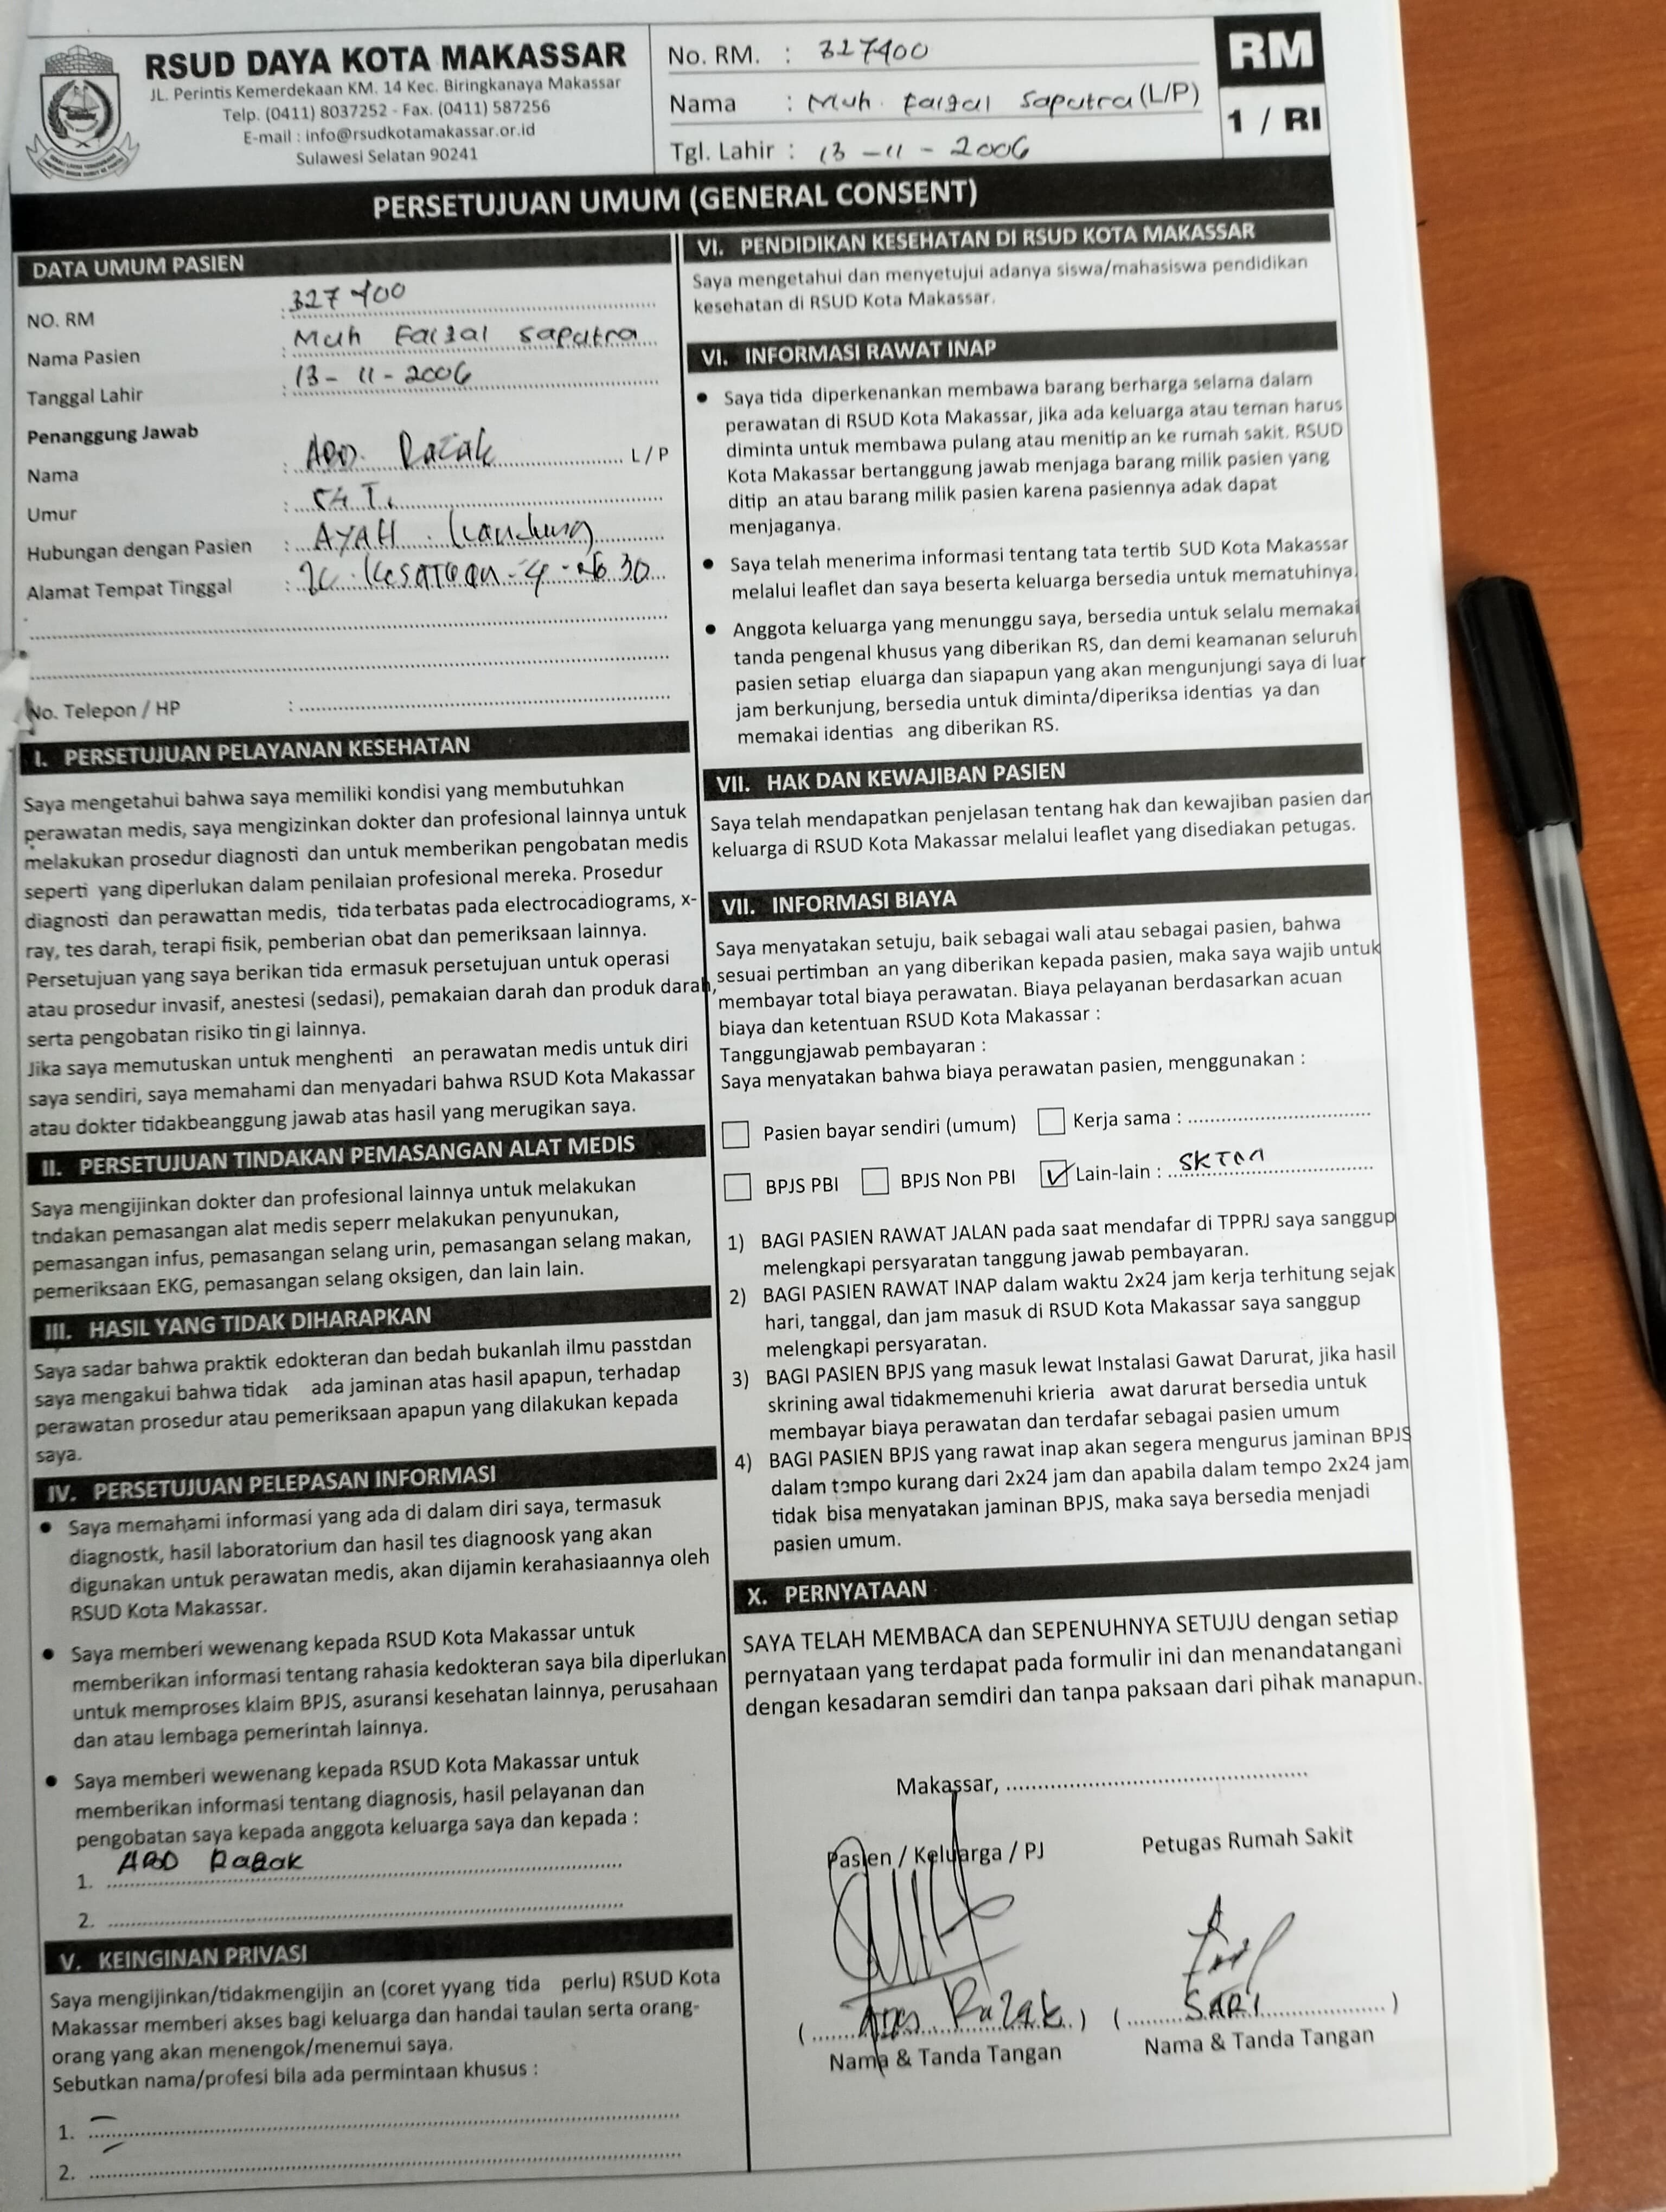 RSUD DAYA KOTA MAKASSAR
JL. Perintis Kemerdekaan KM. 14 Kec. Biringkanaya Makassar
Telp. (0411) 8037252 - Fax. (0411) 587256
E-mail : info@rsudkotamakassar.or.id
Sulawesi Selatan 90241
No. RM. : 327400
Nama : Muh. Faisal Saputra (L/P)
Tgl. Lahir : 13 - 11 - 2006
RM
1 / RI
PERSETUJUAN UMUM (GENERAL CONSENT)
DATA UMUM PASIEN
NO. RM : 327400
Nama Pasien : Muh Faisal Saputra
Tanggal Lahir : 13 - 11 - 2006
Penanggung Jawab
Nama : ABD. Razak L / P
Umur :
Hubungan dengan Pasien : AYAH Kandung
Alamat Tempat Tinggal : 30
No. Telepon / HP :
I. PERSETUJUAN PELAYANAN KESEHATAN
Saya mengetahui bahwa saya memiliki kondisi yang membutuhkan
perawatan medis, saya mengizinkan dokter dan profesional lainnya untuk
melakukan prosedur diagnosti dan untuk memberikan pengobatan medis
seperti yang diperlukan dalam penilaian profesional mereka. Prosedur
diagnosti dan perawattan medis, tida terbatas pada electrocadiograms, x-
ray, tes darah, terapi fisik, pemberian obat dan pemeriksaan lainnya.
Persetujuan yang saya berikan tida ermasuk persetujuan untuk operasi
atau prosedur invasif, anestesi (sedasi), pemakaian darah dan produk darah,
serta pengobatan risiko tin gi lainnya.
Jika saya memutuskan untuk menghenti an perawatan medis untuk diri
saya sendiri, saya memahami dan menyadari bahwa RSUD Kota Makassar
atau dokter tidakbeanggung jawab atas hasil yang merugikan saya.
II. PERSETUJUAN TINDAKAN PEMASANGAN ALAT MEDIS
Saya mengijinkan dokter dan profesional lainnya untuk melakukan
tndakan pemasangan alat medis seperr melakukan penyunukan,
pemasangan infus, pemasangan selang urin, pemasangan selang makan,
pemeriksaan EKG, pemasangan selang oksigen, dan lain lain.
III. HASIL YANG TIDAK DIHARAPKAN
Saya sadar bahwa praktik edokteran dan bedah bukanlah ilmu passtdan
saya mengakui bahwa tidak ada jaminan atas hasil apapun, terhadap
perawatan prosedur atau pemeriksaan apapun yang dilakukan kepada
saya.
IV. PERSETUJUAN PELEPASAN INFORMASI
• Saya memahami informasi yang ada di dalam diri saya, termasuk
diagnostk, hasil laboratorium dan hasil tes diagnoosk yang akan
digunakan untuk perawatan medis, akan dijamin kerahasiaannya oleh
RSUD Kota Makassar.
• Saya memberi wewenang kepada RSUD Kota Makassar untuk
memberikan informasi tentang rahasia kedokteran saya bila diperlukan
untuk memproses klaim BPJS, asuransi kesehatan lainnya, perusahaan
dan atau lembaga pemerintah lainnya.
• Saya memberi wewenang kepada RSUD Kota Makassar untuk
memberikan informasi tentang diagnosis, hasil pelayanan dan
pengobatan saya kepada anggota keluarga saya dan kepada :
1. ABD Razak
2.
V. KEINGINAN PRIVASI
Saya mengijinkan/tidakmengijin an (coret yyang tida perlu) RSUD Kota
Makassar memberi akses bagi keluarga dan handai taulan serta orang-
orang yang akan menengok/menemui saya.
Sebutkan nama/profesi bila ada permintaan khusus :
1.
2.
VI. PENDIDIKAN KESEHATAN DI RSUD KOTA MAKASSAR
Saya mengetahui dan menyetujui adanya siswa/mahasiswa pendidikan
kesehatan di RSUD Kota Makassar.
VI. INFORMASI RAWAT INAP
• Saya tida diperkenankan membawa barang berharga selama dalam
perawatan di RSUD Kota Makassar, jika ada keluarga atau teman harus
diminta untuk membawa pulang atau menitip an ke rumah sakit. RSUD
Kota Makassar bertanggung jawab menjaga barang milik pasien yang
ditip an atau barang milik pasien karena pasiennya adak dapat
menjaganya.
• Saya telah menerima informasi tentang tata tertib SUD Kota Makassar
melalui leaflet dan saya beserta keluarga bersedia untuk mematuhinya.
• Anggota keluarga yang menunggu saya, bersedia untuk selalu memakai
tanda pengenal khusus yang diberikan RS, dan demi keamanan seluruh
pasien setiap eluarga dan siapapun yang akan mengunjungi saya di luar
jam berkunjung, bersedia untuk diminta/diperiksa identias ya dan
memakai identias ang diberikan RS.
VII. HAK DAN KEWAJIBAN PASIEN
Saya telah mendapatkan penjelasan tentang hak dan kewajiban pasien dan
keluarga di RSUD Kota Makassar melalui leaflet yang disediakan petugas.
VII. INFORMASI BIAYA
Saya menyatakan setuju, baik sebagai wali atau sebagai pasien, bahwa
sesuai pertimban an yang diberikan kepada pasien, maka saya wajib untuk
membayar total biaya perawatan. Biaya pelayanan berdasarkan acuan
biaya dan ketentuan RSUD Kota Makassar :
Tanggungjawab pembayaran :
Saya menyatakan bahwa biaya perawatan pasien, menggunakan :
Pasien bayar sendiri (umum) Kerja sama :
BPJS PBI BPJS Non PBI Lain-lain : SKTM
1) BAGI PASIEN RAWAT JALAN pada saat mendafar di TPPRJ saya sanggup
melengkapi persyaratan tanggung jawab pembayaran.
2) BAGI PASIEN RAWAT INAP dalam waktu 2x24 jam kerja terhitung sejak
hari, tanggal, dan jam masuk di RSUD Kota Makassar saya sanggup
melengkapi persyaratan.
3) BAGI PASIEN BPJS yang masuk lewat Instalasi Gawat Darurat, jika hasil
skrining awal tidakmemenuhi krieria awat darurat bersedia untuk
membayar biaya perawatan dan terdafar sebagai pasien umum
4) BAGI PASIEN BPJS yang rawat inap akan segera mengurus jaminan BPJS
dalam tempo kurang dari 2x24 jam dan apabila dalam tempo 2x24 jam
tidak bisa menyatakan jaminan BPJS, maka saya bersedia menjadi
pasien umum.
X. PERNYATAAN
SAYA TELAH MEMBACA dan SEPENUHNYA SETUJU dengan setiap
pernyataan yang terdapat pada formulir ini dan menandatangani
dengan kesadaran semdiri dan tanpa paksaan dari pihak manapun.
Makassar,
Pasien / Keluarga / PJ Petugas Rumah Sakit
( Razak ) ( SARI )
Nama & Tanda Tangan Nama & Tanda Tangan